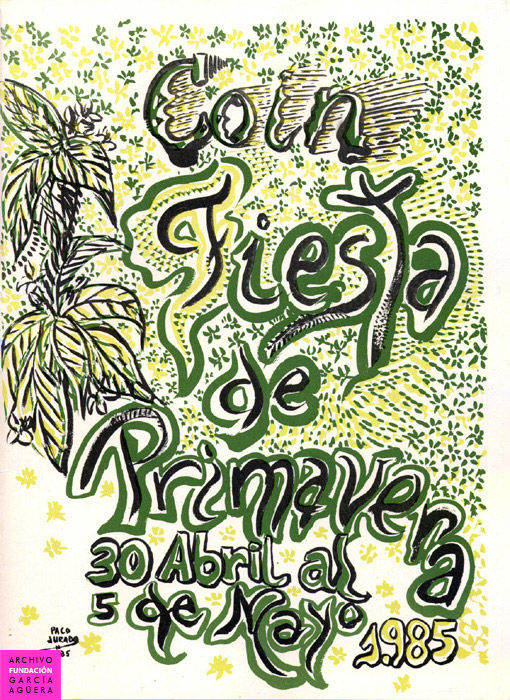 Coin
Fiesta
de
Primavera
30 Abril al
5 de Mayo
1.985
PACO
JURADO
85
ARCHIVO
FUNDACIÓN
GARCÍA
AGÜERA